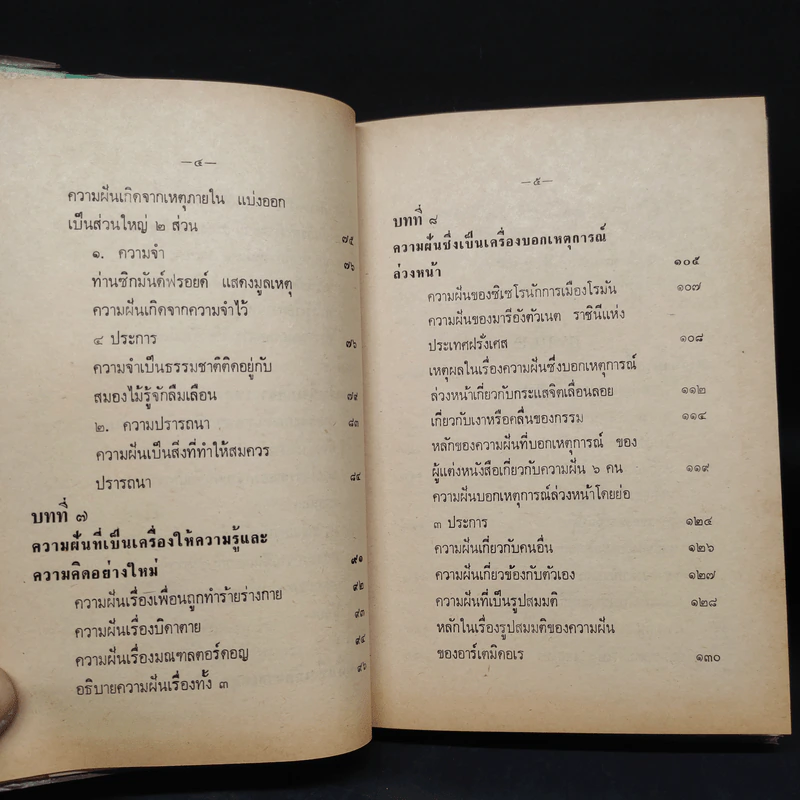 —๔—
ความฝันเกิดจากเหตุภายใน แบ่งออก
เป็นส่วนใหญ่ ๒ ส่วน ๗๕
๑. ความจำ ๗๖
ท่านซิกมันด์ฟรอยด์ แสดงมูลเหตุ
ความฝันเกิดจากความจำไว้
๔ ประการ ๗๖
ความจำเป็นธรรมชาติติดอยู่กับ
สมองไม่รู้จักลืมเลือน ๗๙
๒. ความปรารถนา ๘๓
ความฝันเป็นสิ่งที่ทำให้สมควร
ปรารถนา ๘๔
บทที่ ๗
ความฝันที่เป็นเครื่องให้ความรู้และ
ความคิดอย่างใหม่ ๙๑
ความฝันเรื่องเพื่อนถูกทำร้ายร่างกาย ๙๒
ความฝันเรื่องบิดาตาย ๙๓
ความฝันเรื่องมณฑลตอร์คอญ ๙๔
อธิบายความฝันเรื่องทั้ง ๓ ๙๖
—๕—
บทที่ ๘
ความฝันซึ่งเป็นเครื่องบอกเหตุการณ์
ล่วงหน้า ๑๐๕
ความฝันของซิเซโรนักการเมืองโรมัน ๑๐๗
ความฝันของมารีอังตัวเนต ราชินีแห่ง
ประเทศฝรั่งเศส ๑๐๘
เหตุผลในเรื่องความฝันซึ่งบอกเหตุการณ์
ล่วงหน้าเกี่ยวกับกระแสจิตเลื่อนลอย ๑๑๒
เกี่ยวกับเงาหรือคลื่นของกรรม ๑๑๔
หลักของความฝันที่บอกเหตุการณ์ ของ
ผู้แต่งหนังสือเกี่ยวกับความฝัน ๖ คน ๑๑๙
ความฝันบอกเหตุการณ์ล่วงหน้าโดยย่อ
๓ ประการ ๑๒๔
ความฝันเกี่ยวกับคนอื่น ๑๒๖
ความฝันเกี่ยวข้องกับตัวเอง ๑๒๗
ความฝันที่เป็นรูปสมมติ ๑๒๘
หลักในเรื่องรูปสมมติของความฝัน
ของอาร์เตมิดอเร ๑๓๐